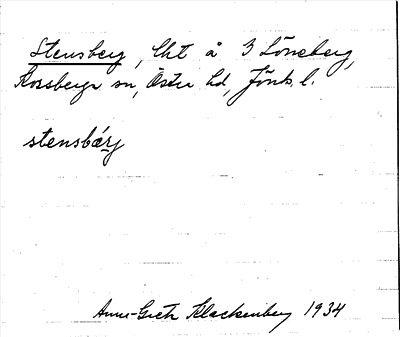 Stensberg, lht å 3 Löneberg,
Korsberga sn, Östra hd, Jönk. l.
stensbärj
Anna-Greta Klackenberg 1934